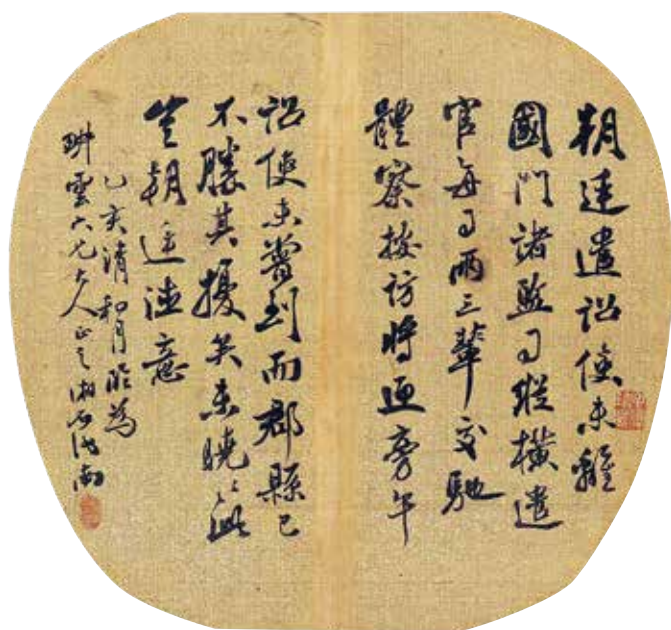 朝廷遣詔使未離
國門諸監司縱橫遣
官每司兩三輩交馳
體察按訪將迎旁午
詔使未嘗到而郡縣已
不勝其擾矣未曉此
豈朝廷德意
乙亥清和月臨為
畊雲六兄大人正之湘